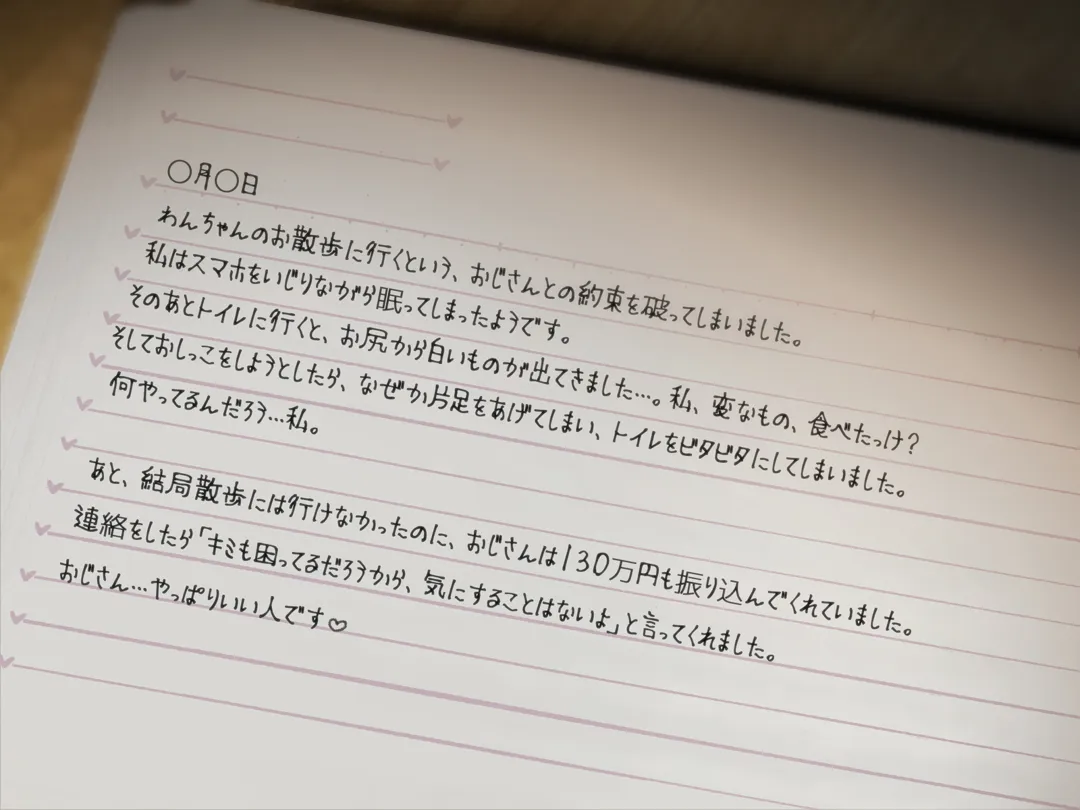 〇月〇日
わんちゃんのお散歩に行くという、おじさんとの約束を破ってしまいました。
私はスマホをいじりながら眠ってしまったようです。
そのあとトイレに行くと、お尻から白いものが出てきました…。私、変なもの、食べたっけ？
そしておしっこをしようとしたら、なぜか片足をあげてしまい、トイレをビタビタにしてしまいました。
何やってるんだろう…私。
あと、結局散歩には行けなかったのに、おじさんは130万円も振り込んでくれていました。
連絡をしたら「キミも困ってるだろうから、気にすることはないよ」と言ってくれました。
おじさん…やっぱりいい人です♡